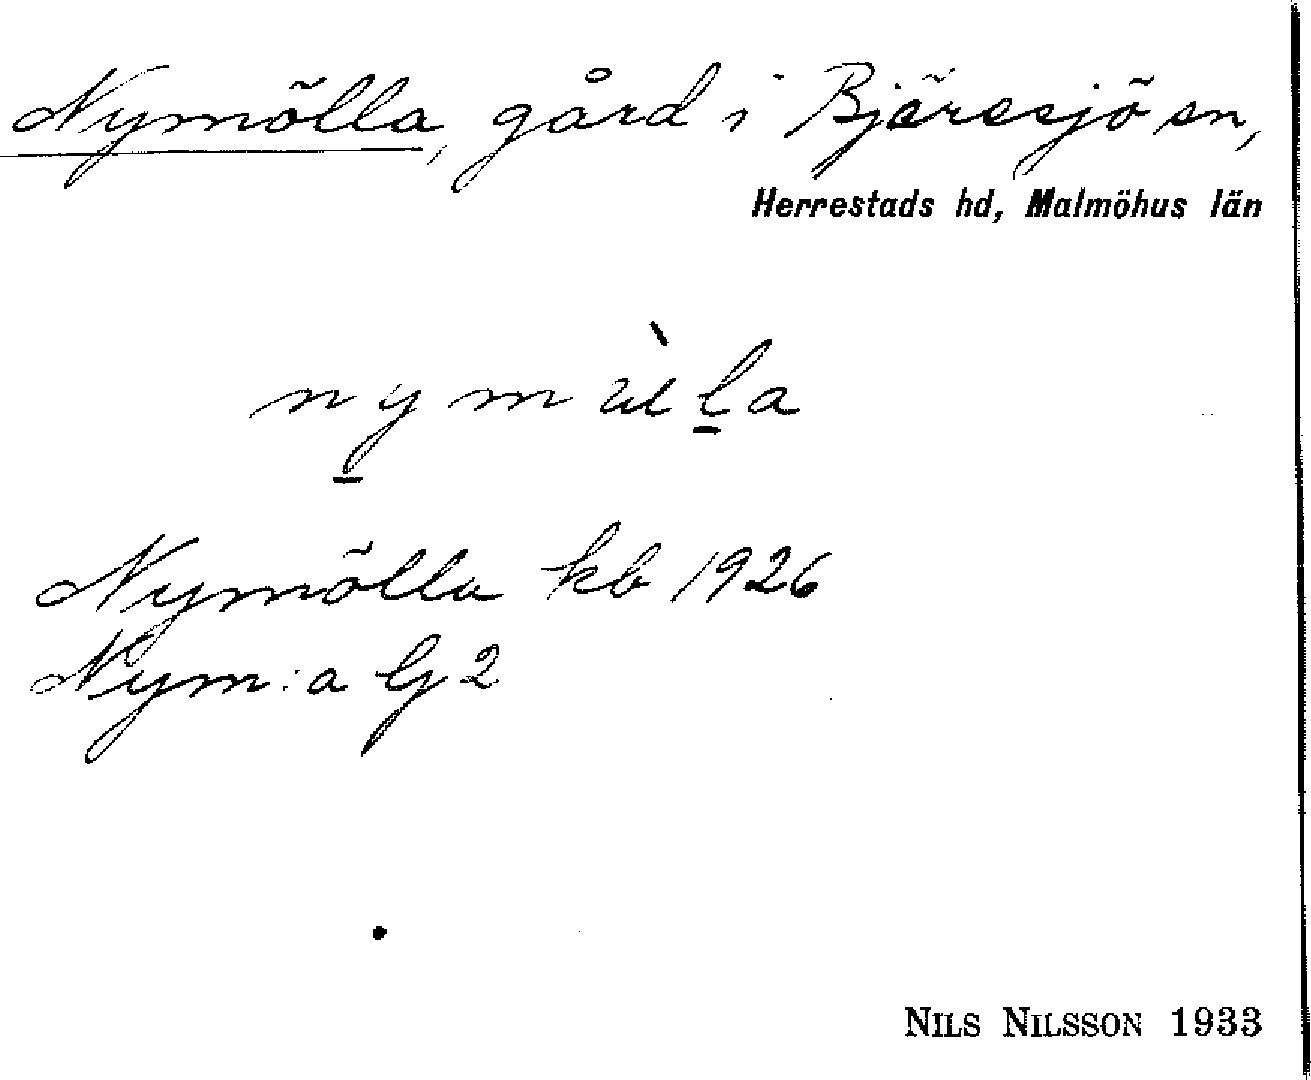 Nymölla, gård i Bjäresjö sn,
Herrestads hd, Malmöhus län
Nymölla kb 1926
Nym:a G 2
NILS NILSSON 1933